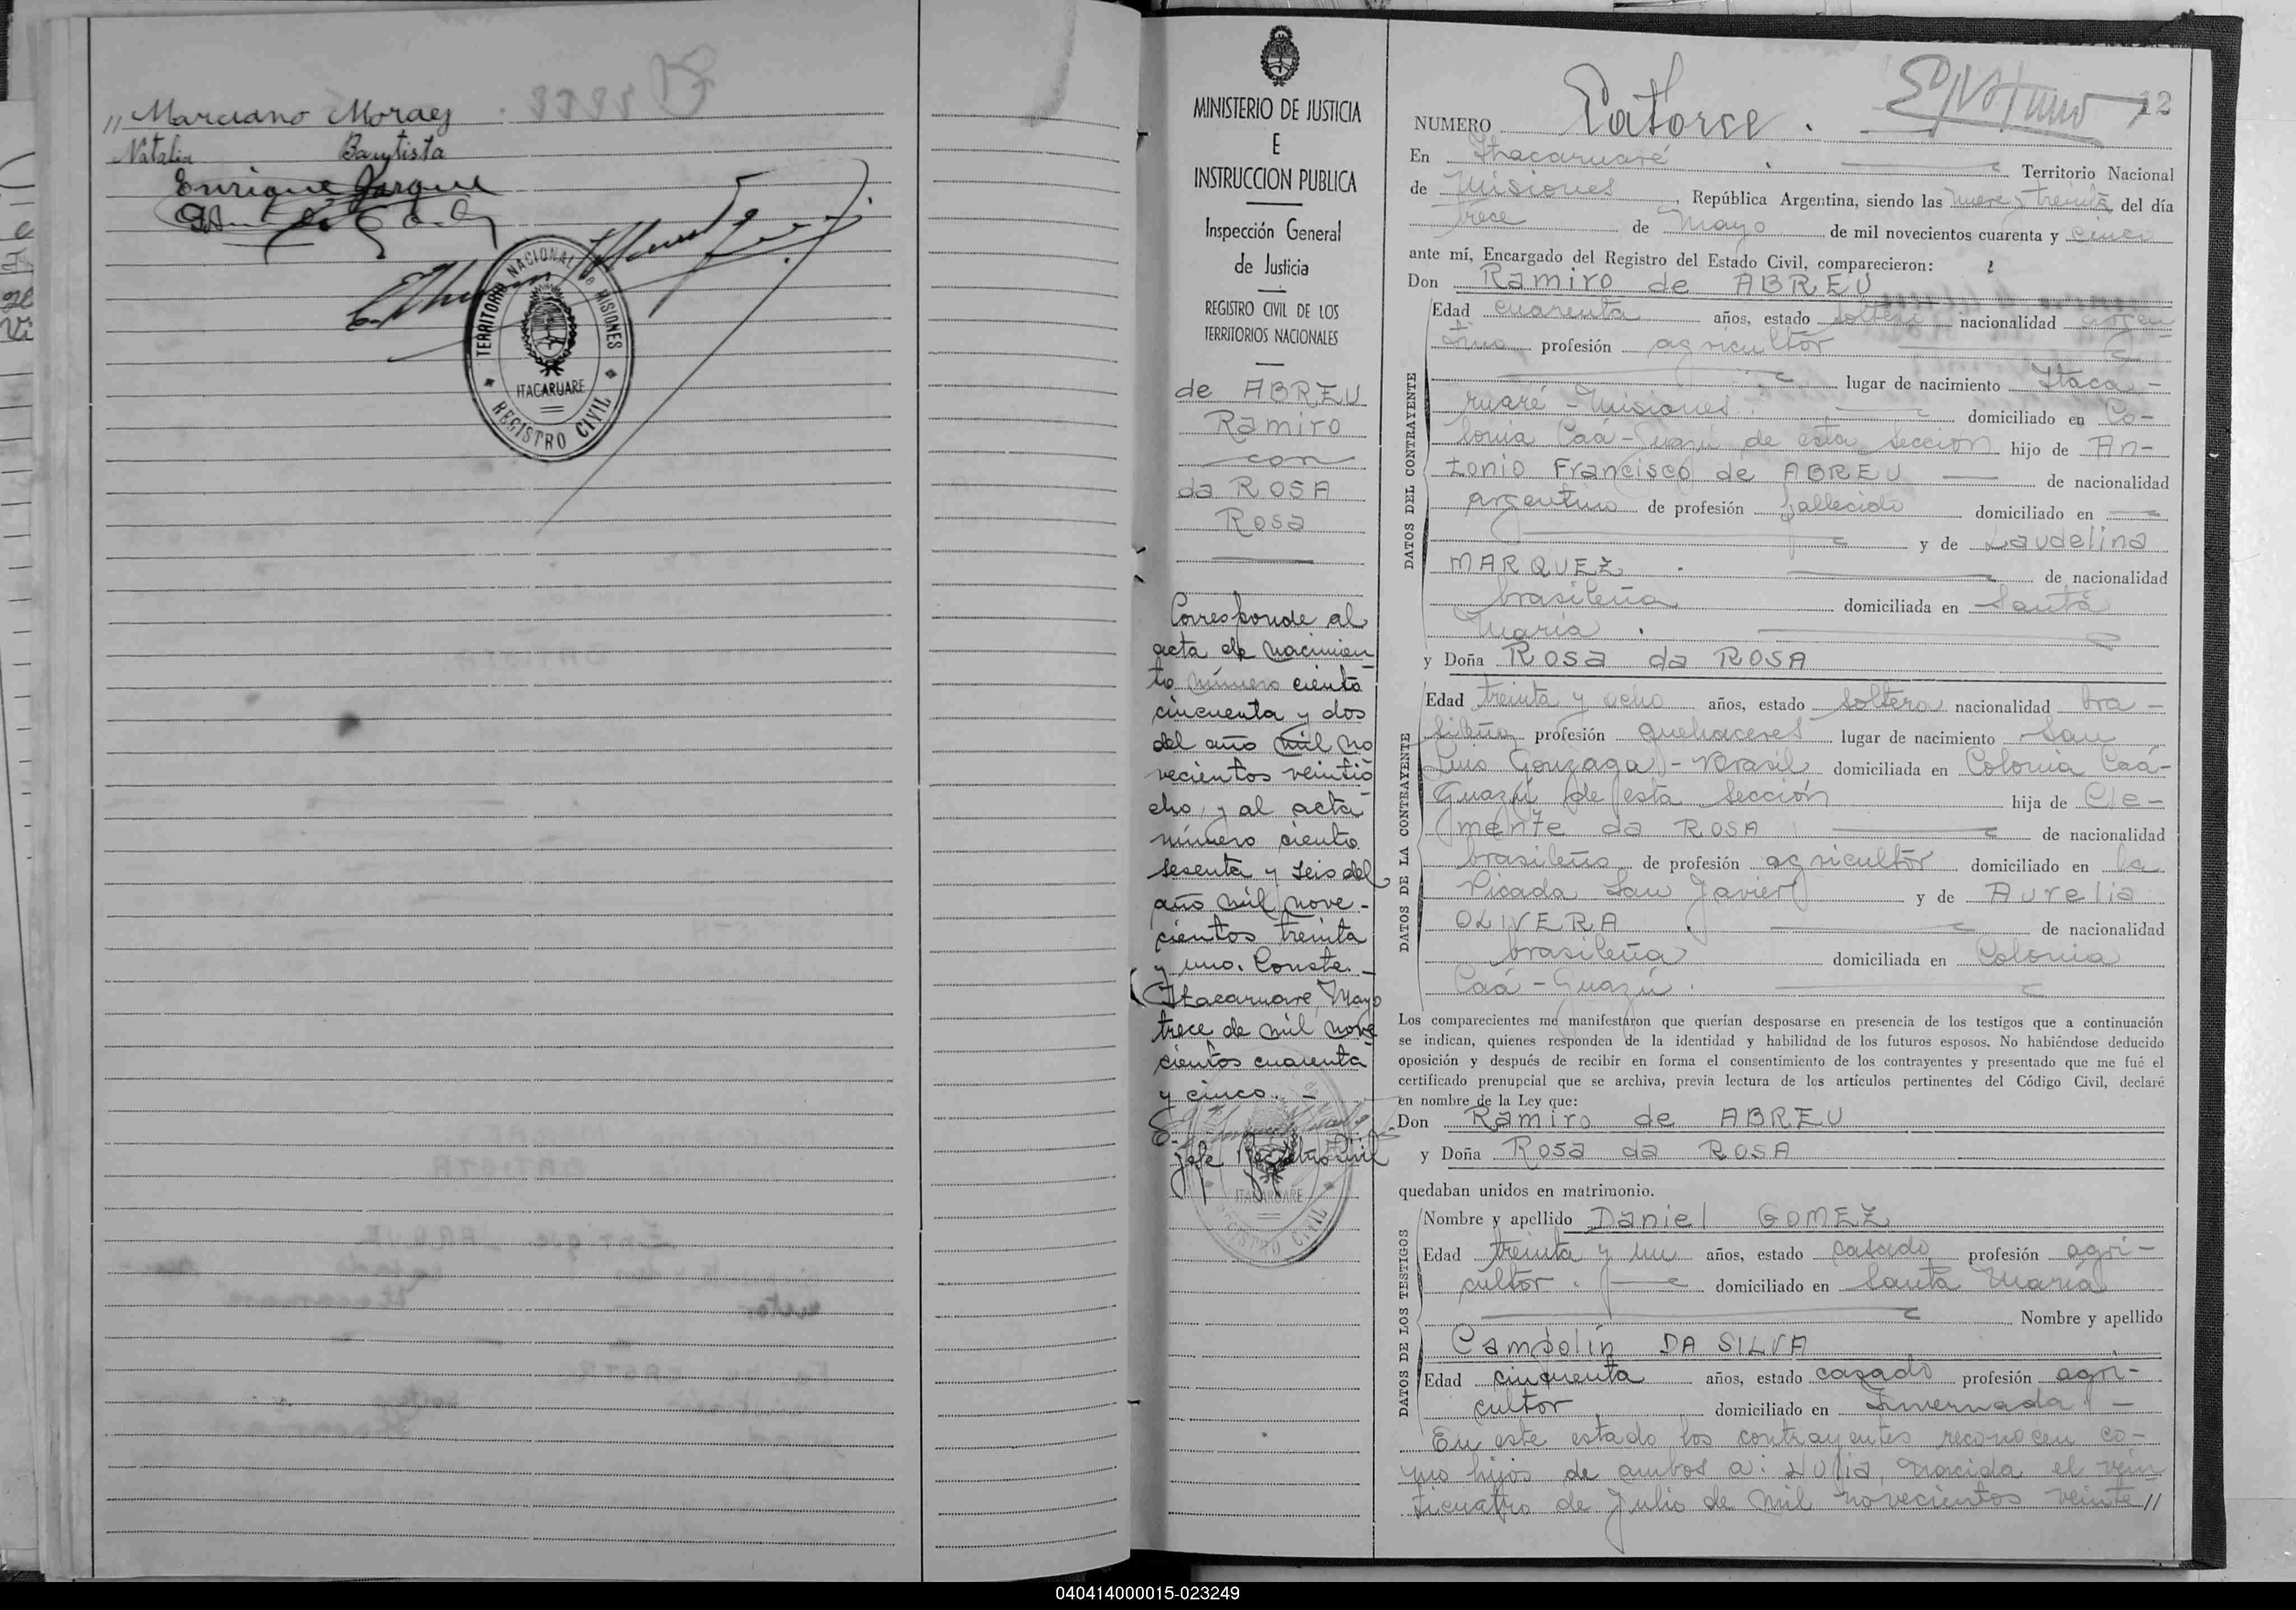 " Marciano Moraes
Natalia Bautista
Enrique Jarque
TERRITORIO NACIONAL DE MISIONES
ITACARUARE
REGISTRO CIVIL
MINISTERIO DE JUSTICIA
E
INSTRUCCION PUBLICA
Inspección General
de Justicia
REGISTRO CIVIL DE LOS
TERRITORIOS NACIONALES
de ABREU
Ramiro
con
da ROSA
Rosa
Corresponde al
acta de nacimien
to número ciento
cincuenta y dos
del año mil no
vecientos veintio
cho, y al acta
número ciento
sesenta y seis del
año mil nove-
cientos treinta
y uno. Conste.-
Itacaruare, Mayo
trece de mil nove
cientos cuarenta
y cinco.-
Jefe Registro Civil
ITACARUARE
REGISTRO CIVIL
12
NUMERO Catorce.
En Itacaruaré. Territorio Nacional
de Misiones, República Argentina, siendo las nueve y treinta del día
trece de Mayo de mil novecientos cuarenta y cinco
ante mí, Encargado del Registro del Estado Civil, comparecieron:
Don Ramiro de ABREU
DATOS DEL CONTRAYENTE
Edad cuarenta años, estado soltero nacionalidad argen
tino profesión agricultor
lugar de nacimiento Itaca-
ruaré - Misiones. domiciliado en Co-
lonia Caá-Guazú de esta Sección hijo de An-
tonio Francisco de ABREU de nacionalidad
argentino de profesión fallecido domiciliado en
y de Laudelina
MARQUEZ. de nacionalidad
brasileña domiciliada en Santa
María.
y Doña Rosa da ROSA
DATOS DE LA CONTRAYENTE
Edad treinta y ocho años, estado soltera nacionalidad bra-
sileña profesión quehaceres lugar de nacimiento San
Luis Gonzaga - Brasil domiciliada en Colonia Caá-
Guazú de esta Sección hija de Cle-
mente da ROSA de nacionalidad
brasileño de profesión agricultor domiciliado en la
Picada San Javier y de Aurelia
OLIVERA. de nacionalidad
brasileña domiciliada en Colonia
Caá-Guazú.
Los comparecientes me manifestaron que querían desposarse en presencia de los testigos que a continuación
se indican, quienes responden de la identidad y habilidad de los futuros esposos. No habiéndose deducido
oposición y después de recibir en forma el consentimiento de los contrayentes y presentado que me fué el
certificado prenupcial que se archiva, previa lectura de los artículos pertinentes del Código Civil, declaré
en nombre de la Ley que:
Don Ramiro de ABREU
y Doña Rosa da ROSA
quedaban unidos en matrimonio.
DATOS DE LOS TESTIGOS
Nombre y apellido Daniel GOMEZ
Edad treinta y un años, estado casado profesión agri-
cultor. domiciliado en Santa María
Nombre y apellido
Campolin DA SILVA
Edad cincuenta años, estado casado profesión agri-
cultor domiciliado en Invernada -
En este estado los contrayentes reconocen co-
mo hijos de ambos a: Julia, nacida el vein
ticuatro de Julio de mil novecientos veinte //
040414000015-023249